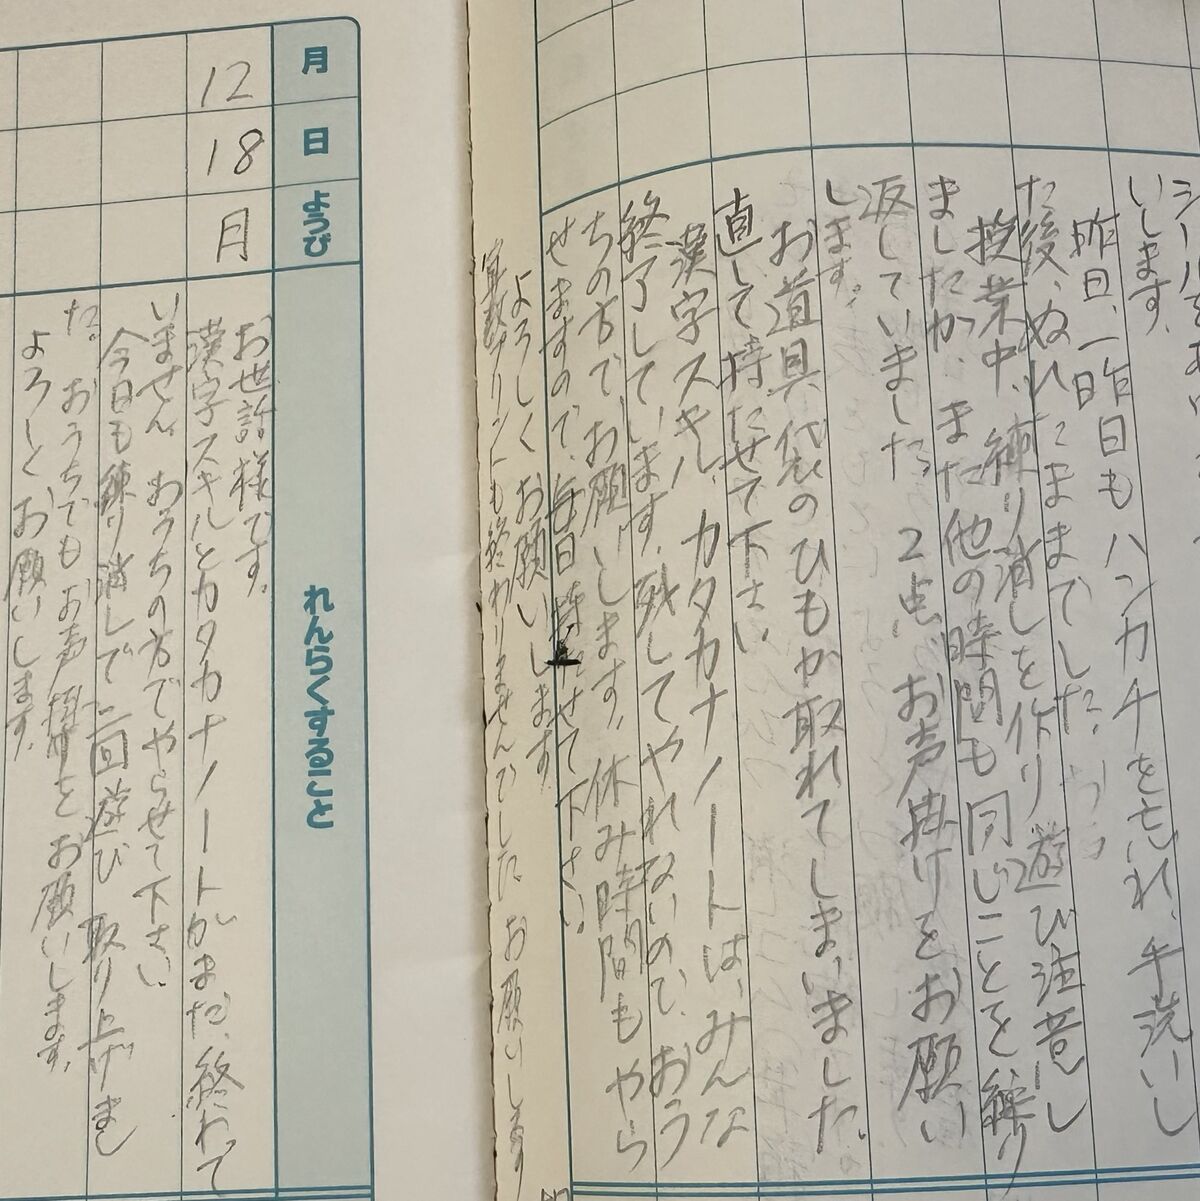 いします。
昨日、一昨日もハンカチを忘れ、手洗いし
た後、ぬれたままでした。
授業中、練り消しを作り遊び注意し
ましたが、また他の時間も同じことを繰り
返していました。2点、お声掛けをお願い
します。
お道具袋のひもが取れてしまいました。
直して持たせて下さい
漢字スキル、カタカナノートは、みんな
終了しています。残してやれないので、おう
ちの方で、お願いします。休み時間もやら
せますので、毎日持たせて下さい。
よろしくお願いします。
算数プリントも終わりませんでした。お願いします
月
日
ようび
れんらくすること
12
18
月
お世話様です。
漢字スキルとカタカナノートがまだ、終わって
いません。おうちの方でやらせて下さい
今日も練り消しで二回遊び 取り上げまし
た。おうちでもお声掛けをお願いします。
よろしくお願いします。